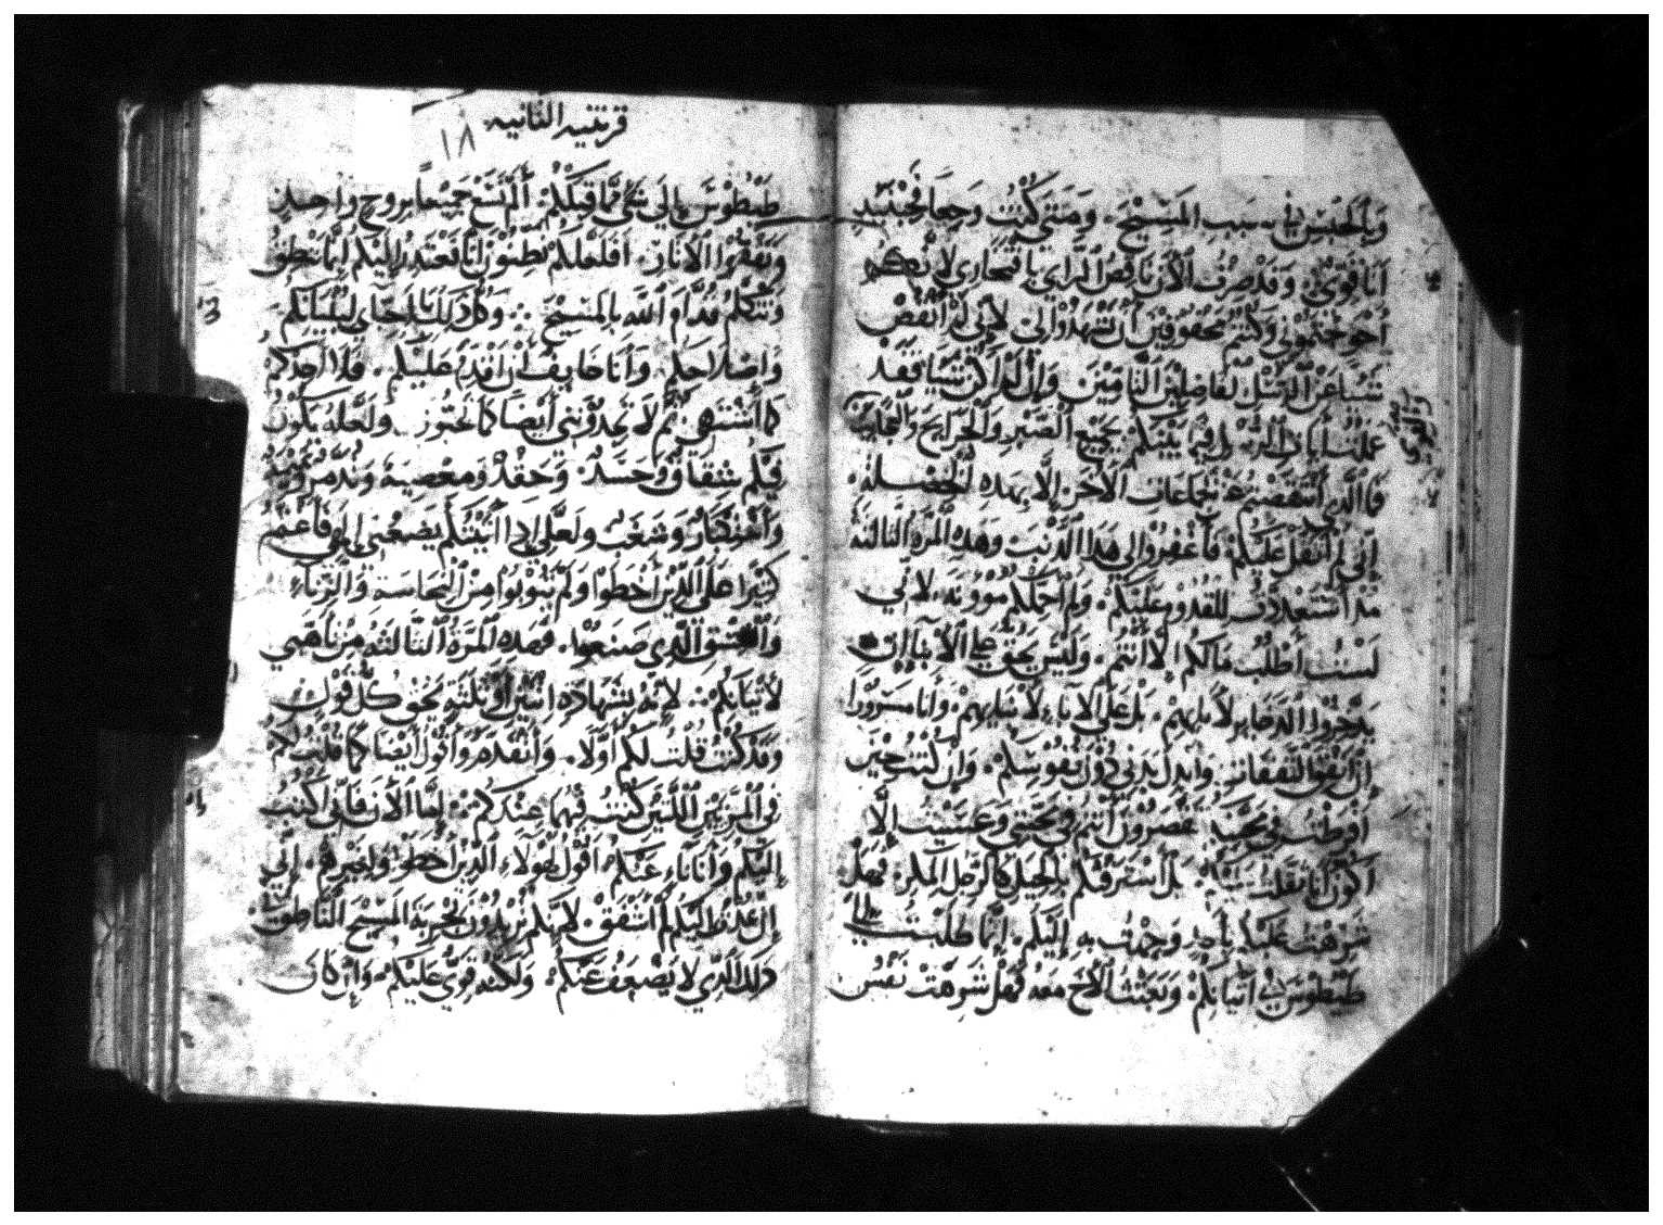 وَبِالحَبْسِ فِي سَبَبِ المَسِيْحِ. وَمَتَى كُنْتُ وَجِعًا فَحِيْنَيِذٍ
اَنَا قَوِيٌّ. وَقَدْ صِرْتُ الاَنَ نَاقِصَ الرَاي بِافْتِخَارِي لاَنَّكُم
اَحْوَجْتُمُوْنِي وَكُنْتُم مَحْقُوْقِيْنَ اَنْ تَشْهَدُوْا لِي لاَنِّي لَمْ اَنْقُصْ
شَيْيًا عَنْ الرُسُلِ الفَاضِلِيْنَ التَّامِّيْنَ وَاِنْ لَمْ اَكُنْ شَيْيًا فَقَد
عَمِلْتُ اَيَاتِ الرُسُلِ فِيْمَا بَيْنَكُم بِجَمِيْعِ الصَبْرِ وَالجَرَايِحِ وَالعَجَايِبِ
والقوى
فَمَا الَّذِي اَنْتَقَصْتُم عَنْ الجَمَاعَاتِ الاُخَرِ اِلَّا بِهَذِهِ الخَصْلَةِ.
اَنِّي لَمْ اَثْقُلْ عَلَيْكُمْ فَاغْفِرُوْا لِي هَذَا الذَنْبَ وَهَذِهِ المَرَّةِ الثَالِثَةِ
مُذْ اَسْتَعْدَدْتُ لِلقُدُوْمِ عَلَيْكُم. وَلَمْ اُحَمِّلْكُم مَوُوْنَةً لاَنِّي
لَسْتُ اَطْلُبُ مَالَكُم اِلَّا اَنْتُم. وَلَيْسَ يَحِقُّ عَلَى الاَبْنَا اَن
يَدَّخِرُوْا الذَخَايِرَ لاَبَايِهِمْ. بَلْ عَلَى الاَبَاءِ لاَبْنَايِهِمْ. وَاَنَا مَسْرُوْرًا
اِنْ اُنْفِقُ النَفَقَاتِ وَاَبْدُلَ بَدَنِي دُوْنَ نُفُوْسِكُم. وَاِنْ كُنْتُ حِيْن
اَفْرَطْتُ فِي مَحَبَّتِكُم تُقَصِّرُوْنَ اَنْتُم فِي مَحَبَّتِي وَعَسَيْتُ اِلَّا
اَكُوْنَ اَنَا ثَقَّلْتُ عَلَيْكُم. بَلْ اَسْتَرَقْتُكُم بِالحِيَلِ كَالرَجُلِ المَكِرِ. فَهَلْ
شَرِهْتُ عَلَيْكُم بِاَحَدٍ وَجَّهْتُ بِهِ اِلَيْكُم. اِنَّمَا طَلَبْتُ اِلَى
طِيْطُوْسَ فِي اِتْيَانِكُمْ. وَبَعَثْتُ الاَخَ مَعَهُ فَهَلْ شَرِهَتْ نَفْسُ
قرنتيه الثانيه
١٨
طِيْطُوْسَ اِلَى شَيٍّ مِمَّا قِبَلَكُمْ. اَلَمْ نَسْعَ جَمِيْعًا بِرُوْحٍ وَاحِدٍ
وَنَقْفُوْا الاَثَارَ. اَفَلَعَلَّكُمْ تَظِنُّوْنَ اَنَّا نَعْتَذِرُ اِلَيْكُم اِنَّمَا نَنْطِقُ
وَنَتَكَلَّمُ قُدَّامَ اللهِ بِالمَسِيْحِ. وَكُلُّ ذَلِكَ يَا اَحِبَّاي لِبُنْيَانِكُم
وَاِصْلاَحِكُم. وَاَنَا خَايِفٌ اَنْ اَقْدَمَ عَلَيْكُم. فَلاَ اَجِدَكُم
كَمَا اَشْتَهِي ثُمَّ لاَ تَجِدُوْنَنِي اَيْضًا كَمَا تُحِبُّوْنَ. وَلَعَلَّهُ يَكُوْنُ
فِيْكُم شِقَاقٌ وَحَسَدٌ. وَحِقْدٌ وَمَعْصِيَةٌ وَتَذَمُّرٌ وَنَمِيْمَةٌ
وَاِسْتِكْبَارٌ وَشَغَبٌ وَلَعَلِّي اِذَا اَتَيْتُكُم يَضَعُنِي اِلَهِي فَاَغْتَمُّ
كَثِيْرًا عَلَى الَّذِيْنَ اَخْطَوْا وَلَمْ يَتُوْبُوْا مِنَ النَجَاسَةِ وَالزِنَاءِ
وَالفِسْقِ الَّذِي صَنَعُوْا. فَهَذِهِ المَرَّةُ الثَالِثَةُ مِنْ تَاَهُّبِي
لاِتْيَانِكُمْ. لاَنَّهُ بِشَهَادَةِ اِثْنَيْنِ اَوْ ثَلَثَةٍ يَحِقُّ كُلُّ قَوْلٍ
وَقَدْ كُنْتُ قُلْتُ لَكُم اَوَّلاً. وَاَتَقَدَّمُ وَاَقُوْلُ اَيْضًا كَمَا قُلْتُ لَكُم
فِي المَرَّتَيْنِ اللَّتَيْنِ كُنْتُ فِيْهِمَا عِنْدَكُم. اِمَّا الاَنَ فَاِنِّي اَكْتُبُ
اِلَيْكُمْ وَاَنَا نَاءٍ عَنْكُم اَقُوْلُ لِهَوُلاَءِ الَّذِيْنَ اَخْطَوْا وَلِغَيْرِهِم. اِنِّي
اِنْ عُدْتُ اِلَيْكُم لَمْ اُشْفِقْ. لاَنَّكُم تُرِيْدُوْنَ تَجْرِبَةَ المَسِيْحِ النَّاطِقِ فِيَّ
ذَلِكَ الَّذِي لاَ يَضْعُفُ عَنْكُم. وَلَكِنَّهُ قَوِيٌّ عَلَيْكُم. وَاِنْ كَانَ